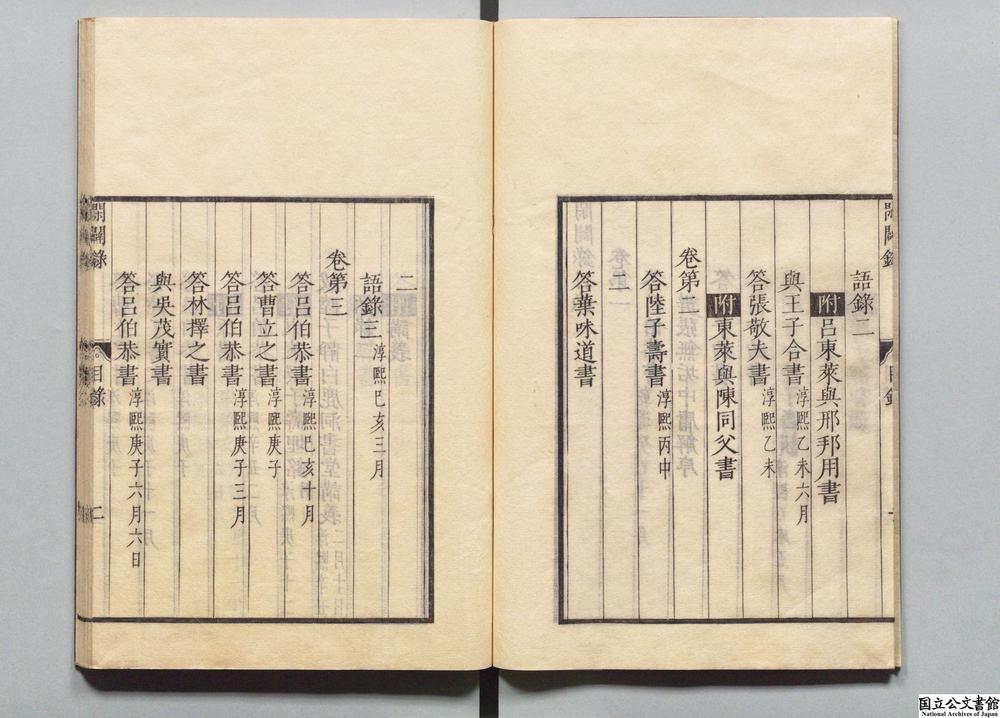 語錄二
附呂東萊與邢邦用書
與王子合書淳熙乙未六月
答張敬夫書淳熙乙未
附東萊與陳同父書
卷第二
答陸子壽書淳熙丙申
一
答葉味道書
二
語錄三淳熙己亥三月
卷第三
答呂伯恭書淳熙己亥十月
答曹立之書淳熙庚子
答呂伯恭書淳熙庚子三月
答林擇之書
與吳茂實書
答呂伯恭書淳熙庚子六月六日
閑闢錄
目錄
二
国立公文書館
National Archives of Japan